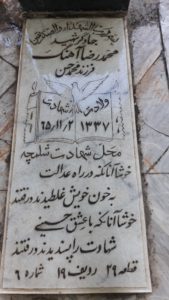 جاوید شهید
محمدرضا آهنگ
فرزند محسن
ولادت شهادت
۱۳۳۷ ۶۵/۱۱/۲
محل شهادت شلمچه
خوشا آنانکه در راه عدالت
به خون خویش غلطیدند و رفتند
خوشا آنانکه با عشق حسینی
شهادت را پسندیدند و رفتند
قطعه ۲۹ ردیف ۱۹ شماره ۶